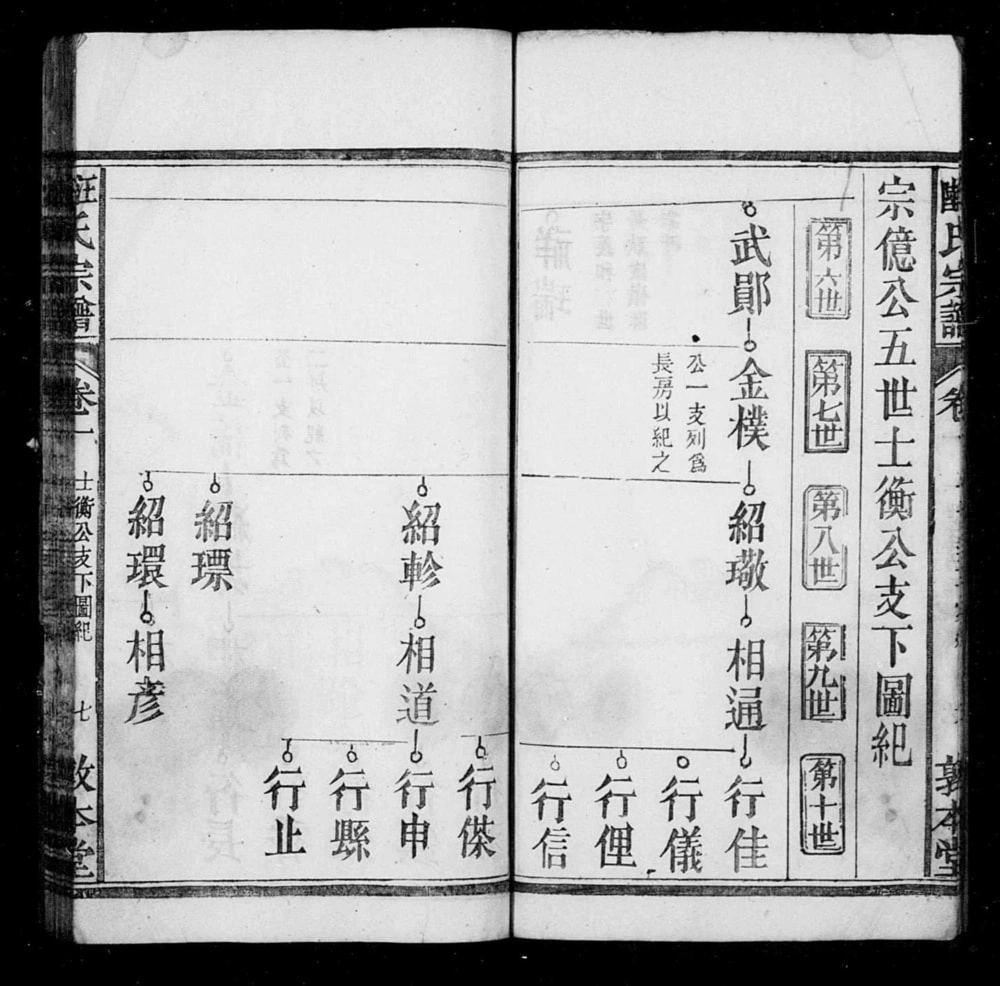 氏宗譜
卷
敦本堂
宗億公五世士衡公支下圖紀
第六世
第七世
第八世
第九世
第十世
武鄖
金樸
公一支列爲
長房以紀之
紹璥
相通
行佳
行儀
行俚
行信
行傑
紹軫
相道
行申
行縣
行止
紹瑮
紹環
相彥
氏宗譜
卷一
士衡公支下圖紀
七
敦本堂